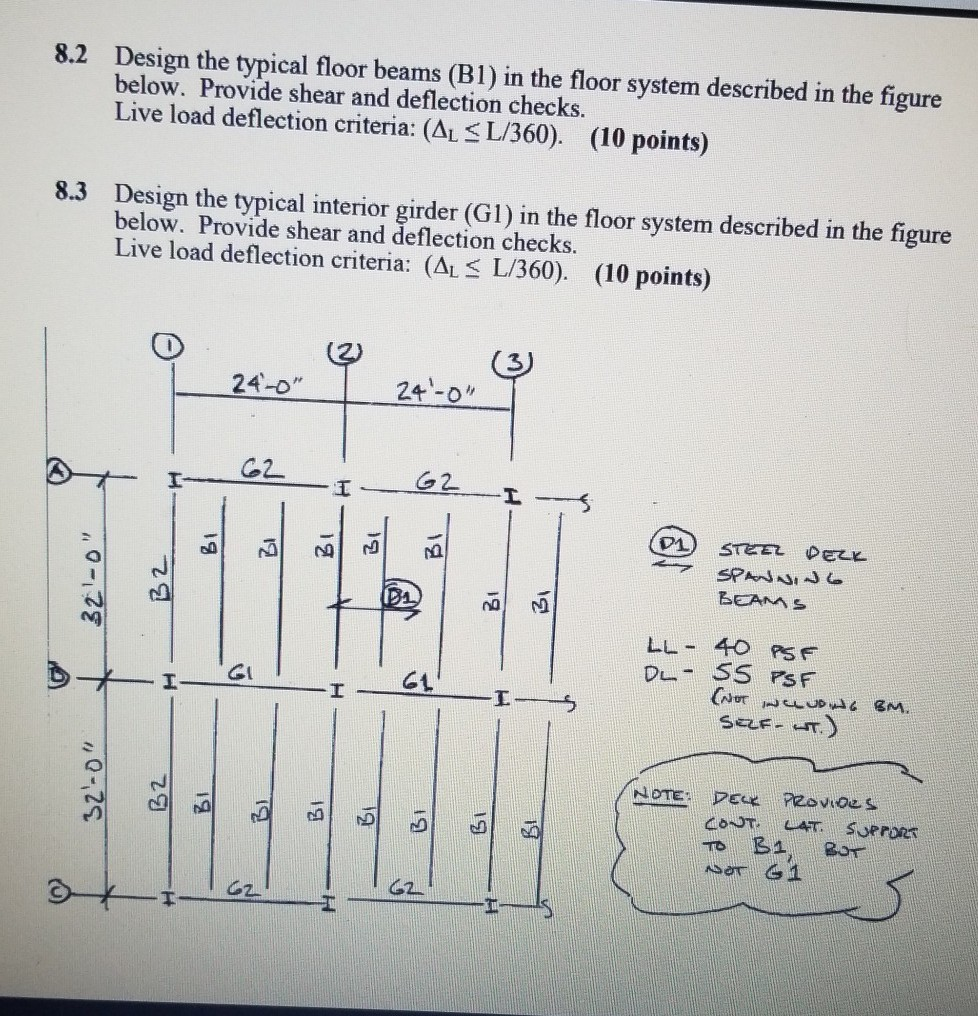 8.2 Design the typical floor beams (B1) in the floor system described in the figure
below. Provide shear and deflection checks.
Live load deflection criteria: (ΔL ≤ L/360). (10 points)
8.3 Design the typical interior girder (G1) in the floor system described in the figure
below. Provide shear and deflection checks.
Live load deflection criteria: (ΔL ≤ L/360). (10 points)
1 (2) (3)
24'-0" 24'-0"
A G2 G2
32'-0" B2 B1 B1 B1 B1 B1 B1 B1
D1
B G1 G1
32'-0" B2 B1 B1 B1 B1 B1 B1 B1
C G2 G2
D1 STEEL DECK
SPANNING
BEAMS
LL - 40 PSF
DL - 55 PSF
(NOT INCLUDING BM.
SELF-WT.)
NOTE: DECK PROVIDES
CONT. LAT. SUPPORT
TO B1, BUT
NOT G1